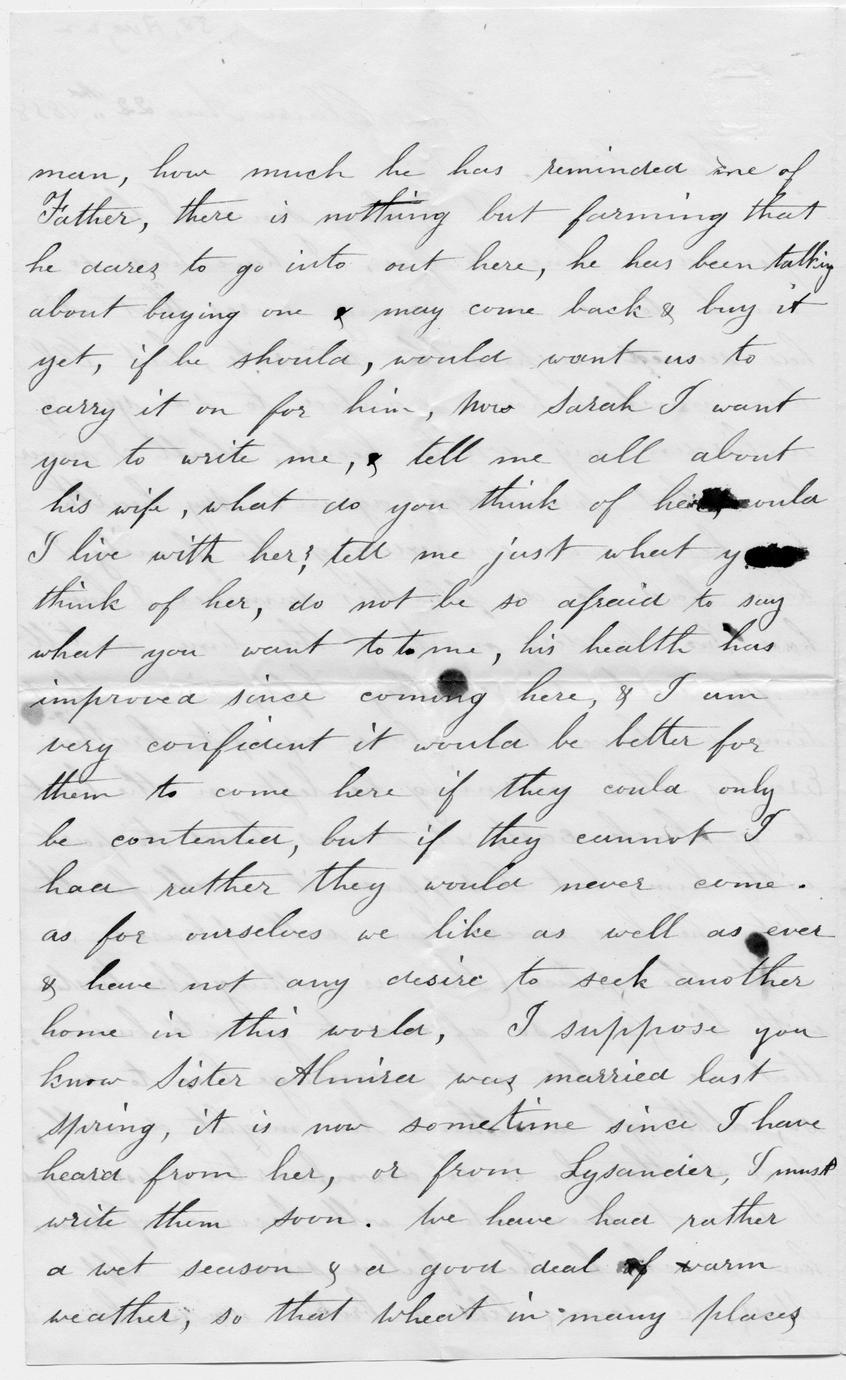 man, how much he has reminded me of
Father, there is nothing but farming that
he dares to go into out here, he has been talking
about buying one & may come back & buy it
yet, if he should, would want us to
carry it on for him, now Sarah I want
you to write me, & tell me all about
his wife, what do you think of her, could
I live with her; tell me just what y
think of her, do not be so afraid to say
what you want to to me, his health has
improved since coming here, & I am
very confident it would be better for
them to come here if they could only
be contented, but if they cannot I
had rather they would never come.
as for ourselves we like as well as ever
& have not any desire to seek another
home in this world, I suppose you
know Sister Almira was married last
spring, it is now sometime since I have
heard from her, or from Lysander, I must
write them soon. We have had rather
a wet season & a good deal of warm
weather, so that wheat in many places